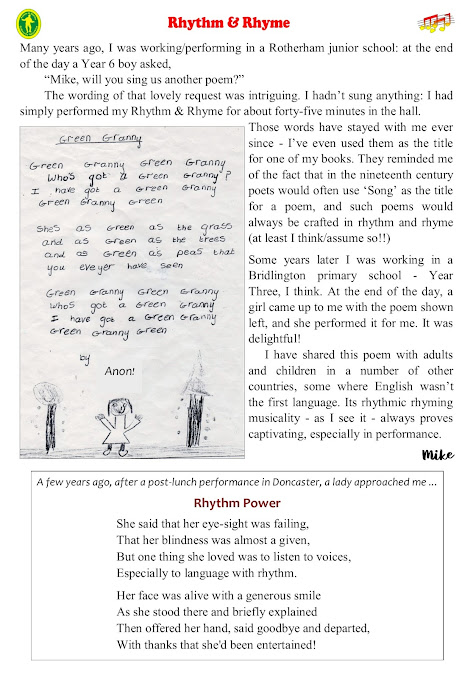 Rhythm & Rhyme
Many years ago, I was working/performing in a Rotherham junior school: at the end
of the day a Year 6 boy asked,
“Mike, will you sing us another poem?”
The wording of that lovely request was intriguing. I hadn’t sung anything: I had
simply performed my Rhythm & Rhyme for about forty-five minutes in the hall.
Green Granny
Green Granny Green Granny
Who's got a Green Granny?
I have got a Green Granny
Green Granny Green
She's as Green as the grass
and as Green as the trees
and as Green as peas that
you eveyer have seen
Green Granny Green Granny
Whos got a Green Granny
I have got a Green Granny
Green Granny Green
by
Anon!
Those words have stayed with me ever
since - I’ve even used them as the title
for one of my books. They reminded me
of the fact that in the nineteenth century
poets would often use ‘Song’ as the title
for a poem, and such poems would
always be crafted in rhythm and rhyme
(at least I think/assume so!!)
Some years later I was working in a
Bridlington primary school - Year
Three, I think. At the end of the day, a
girl came up to me with the poem shown
left, and she performed it for me. It was
delightful!
I have shared this poem with adults
and children in a number of other
countries, some where English wasn’t
the first language. Its rhythmic rhyming
musicality - as I see it - always proves
captivating, especially in performance.
Mike
A few years ago, after a post-lunch performance in Doncaster, a lady approached me ...
Rhythm Power
She said that her eye-sight was failing,
That her blindness was almost a given,
But one thing she loved was to listen to voices,
Especially to language with rhythm.
Her face was alive with a generous smile
As she stood there and briefly explained
Then offered her hand, said goodbye and departed,
With thanks that she'd been entertained!